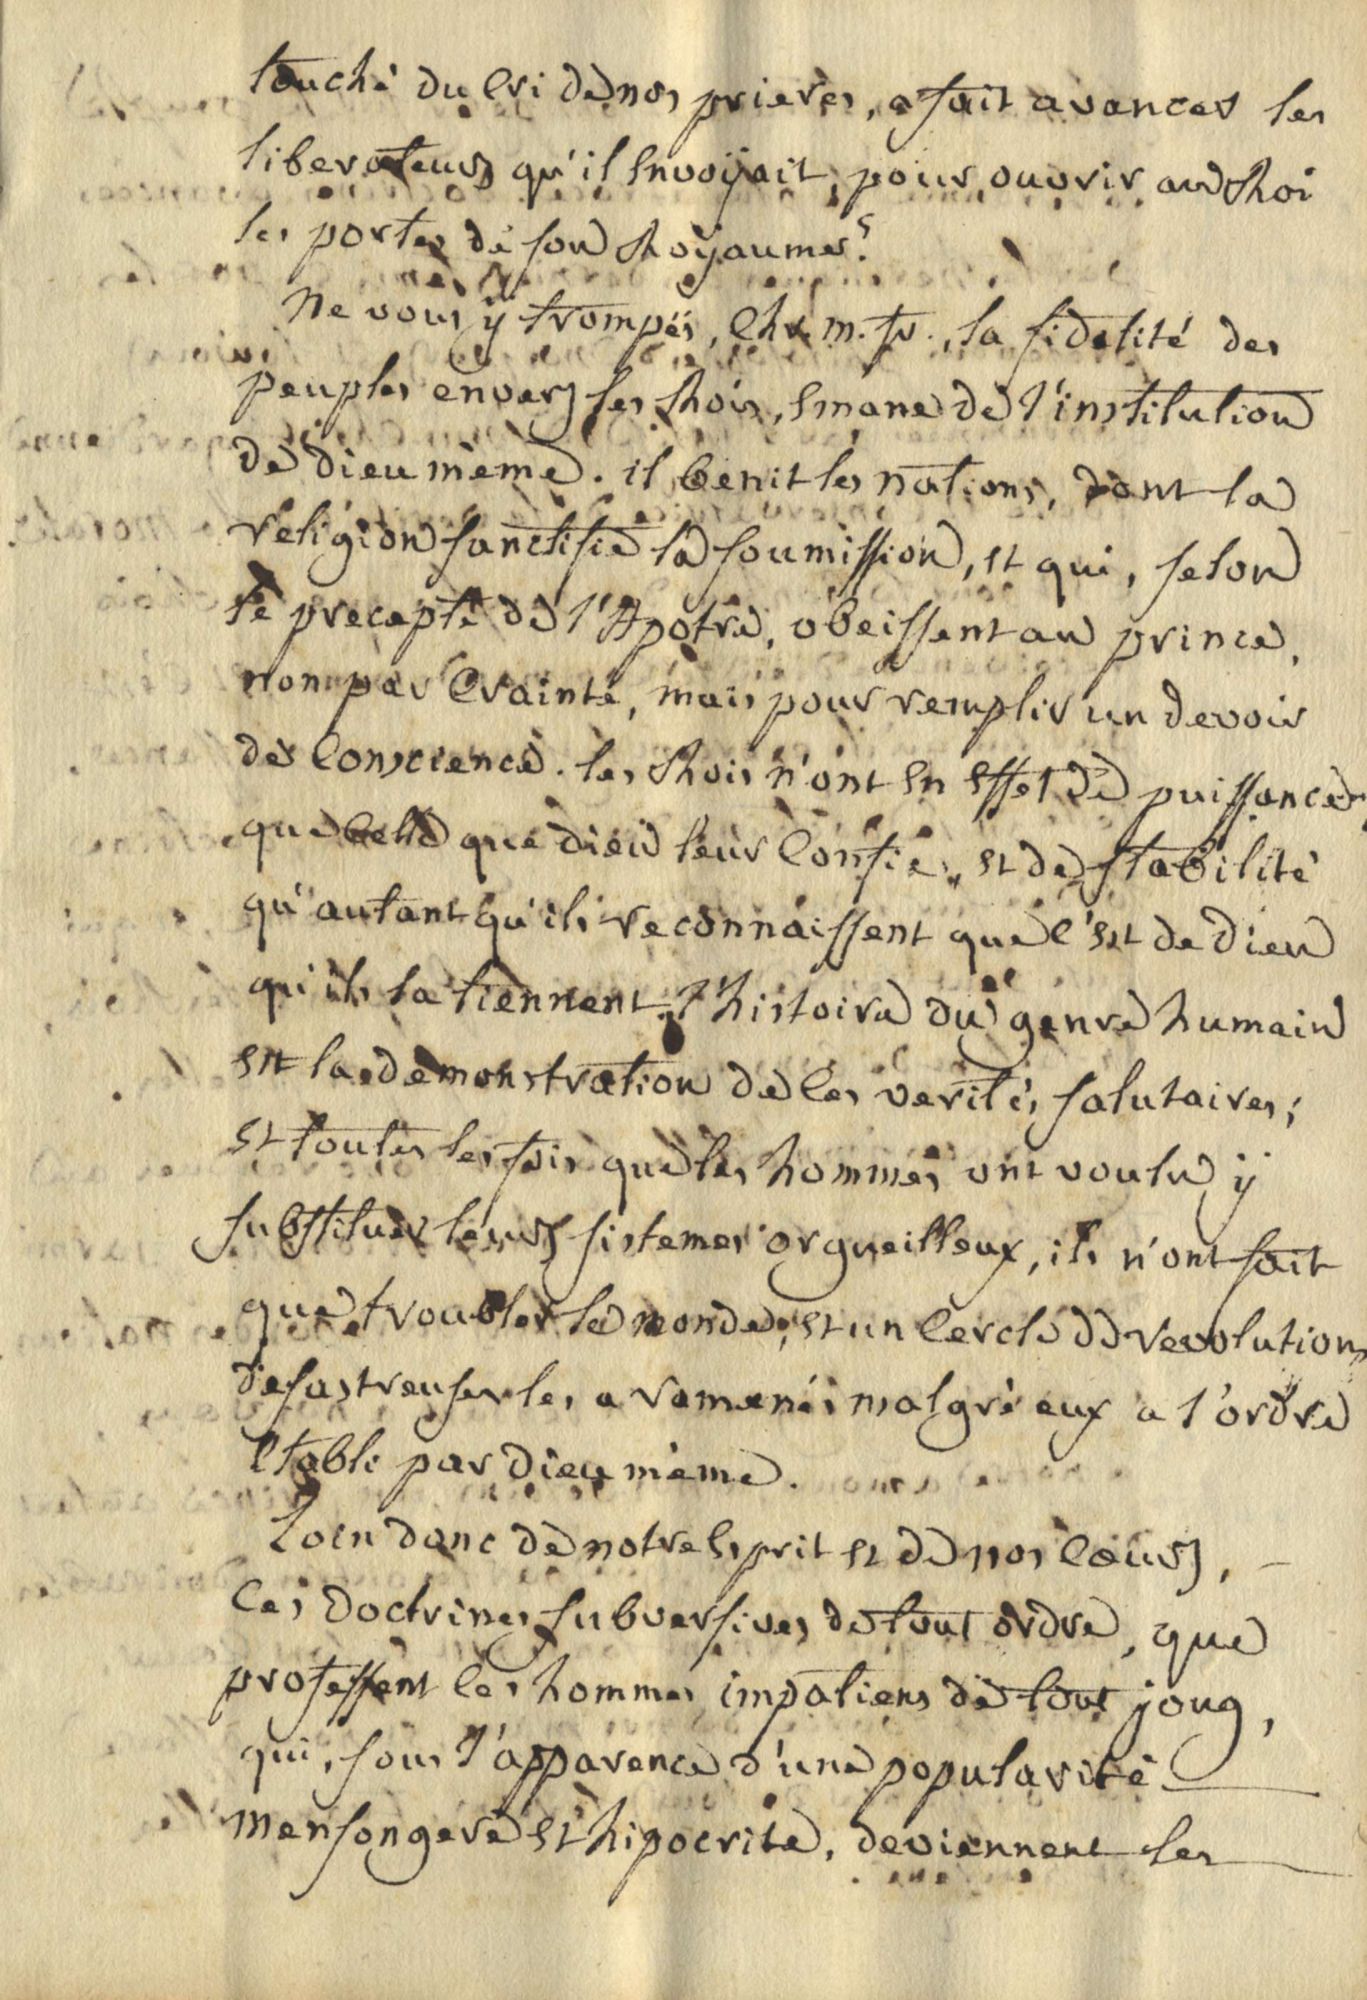 touché du cri de nos prieres, a fait avancer les
liberateurs qu'il envoÿait, pour ouvrir au Roi
les portes de son Roÿaume?
Ne vous ÿ trompés, Ch. m. f., la fidelité des
peuples envers les Rois, emane de l'institution
de dieu même. il benit les nations, dont la
religion sanctifie la soumission, et qui, selon
le precepte de l'Apotre, obeissent au prince,
non par crainte, mais pour remplir un devoir
de conscience. les Rois n'ont en effet de puissance,
que celle que dieu leur confie, et de stabilité
qu'autant qu'ils reconnaissent que c'est de dieu
qu'ils la tiennent. l'histoire du genre humain
est la demonstration de ces verités salutaires;
et toutes les fois que les hommes ont voulu ÿ
substituer leurs sistemes orgueilleux, ils n'ont fait
que troubler le monde; et un cercle de revolutions
desastreuses les a ramenés malgré eux a l'ordre
etabli par dieu même.
Loin donc de notre esprit et de nos cœurs,
ces doctrines subversives de tout ordre, que
professent les hommes impatiens de tout joug,
qui, sous l'apparence d'une popularité
mensongere et hipocrite, deviennent les